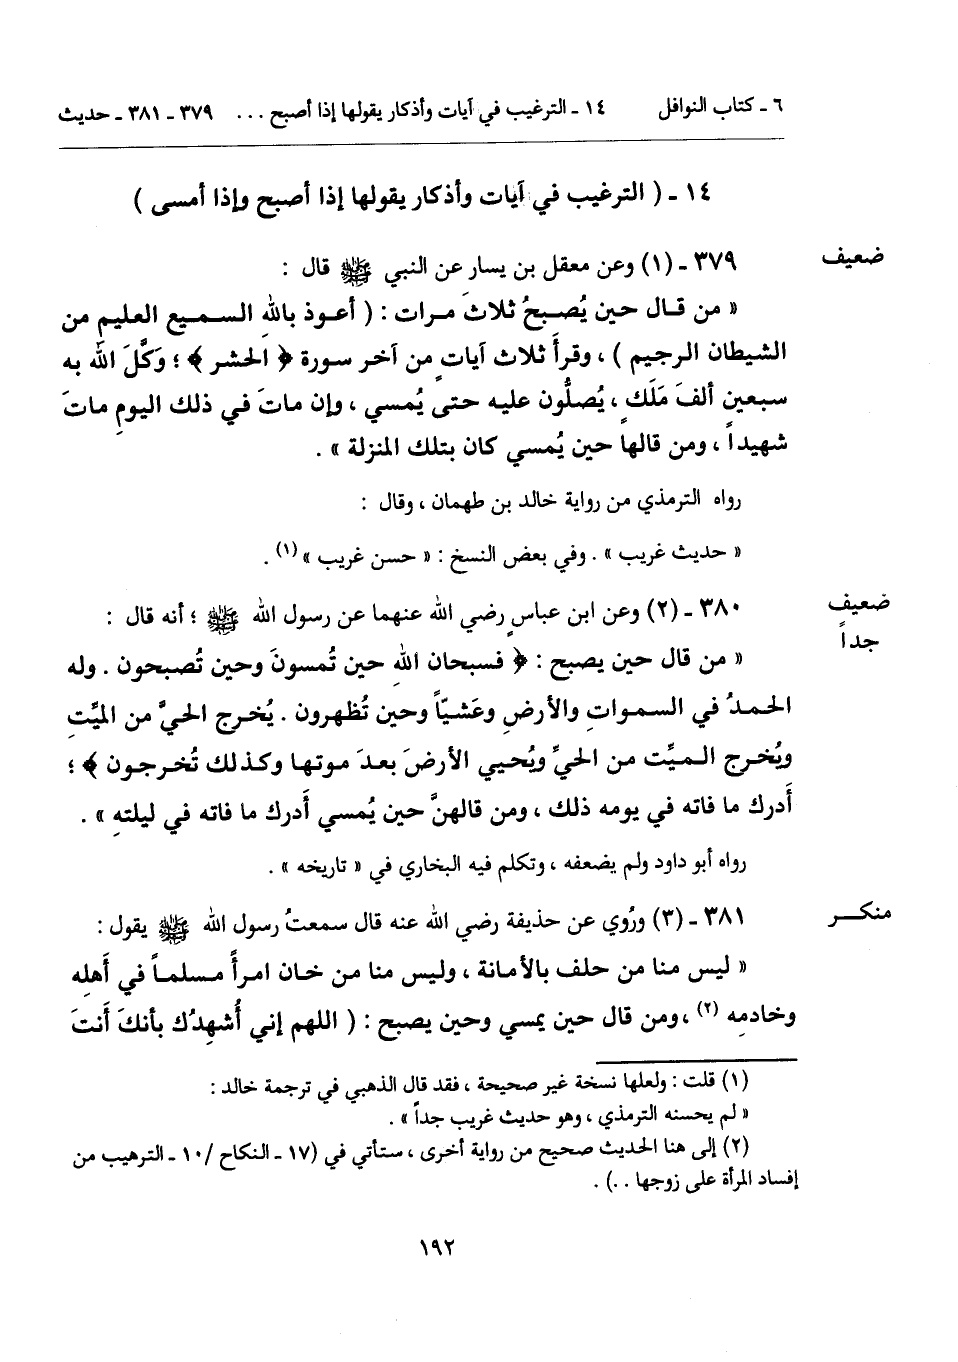 ٦ ـ كتاب النوافل ١٤ ـ الترغيب في آيات وأذكار يقولها إذا أصبح ... ٣٧٩ ـ ٣٨١ ـ حديث
١٤ ـ ( الترغيب في آيات وأذكار يقولها إذا أصبح وإذا أمسى )
ضعيف ٣٧٩ ـ (١) وعن معقل بن يسار عن النبي ﷺ قال :
« من قال حين يُصبحُ ثلاثَ مرات : ( أعوذ باللهِ السميع العليمِ من
الشيطان الرجيم ) ، وقرأَ ثلاث آياتٍ من آخر سورة ﴿ الحشر ﴾ ؛ وَكَّلَ اللهُ به
سبعين ألفَ مَلَكٍ ، يُصلُّون عليه حتى يُمسي ، وإن ماتَ في ذلك اليومِ ماتَ
شهيداً ، ومن قالها حين يُمسي كان بتلك المنزلة » .
رواه الترمذي من رواية خالد بن طهمان ، وقال :
« حديث غريب » . وفي بعض النسخ : « حسن غريب »(١) .
ضعيف ٣٨٠ ـ (٢) وعن ابن عباسٍ رضي الله عنهما عن رسول الله ﷺ ؛ أنه قال :
جداً
« من قال حين يصبح : ﴿ فسبحان اللهِ حين تُمسونَ وحين تُصبحون . وله
الحمدُ في السمواتِ والأرضِ وعَشيّاً وحين تُظهرون . يُخرج الحيَّ من الميَّتِ
ويُخرج الميَّت من الحيِّ ويُحيي الأرضَ بعدَ موتها وكذلك تُخرجون ﴾ ؛
أَدرك ما فاته في يومه ذلك ، ومن قالهنَّ حين يُمسي أَدرك ما فاته في ليلتهِ » .
رواه أبو داود ولم يضعفه ، وتكلم فيه البخاري في « تاريخه » .
منكر ٣٨١ ـ (٣) ورُوي عن حذيفة رضي الله عنه قال سمعتُ رسول الله ﷺ يقول :
« ليس منا من حلف بالأمانة ، وليس منا من خان امرأً مسلماً في أَهلِه
وخادمِه (٢) ، ومن قال حين يمسي وحين يصبح : ( اللهم إني أُشهِدُك بأنكَ أَنتَ
(١) قلت : ولعلها نسخة غير صحيحة ، فقد قال الذهبي في ترجمة خالد :
« لم يحسنه الترمذي ، وهو حديث غريب جداً » .
(٢) إلى هنا الحديث صحيح من رواية أخرى ، ستأتي في (١٧ ـ النكاح / ١٠ ـ الترهيب من
إفساد المرأة على زوجها . .) .
١٩٢